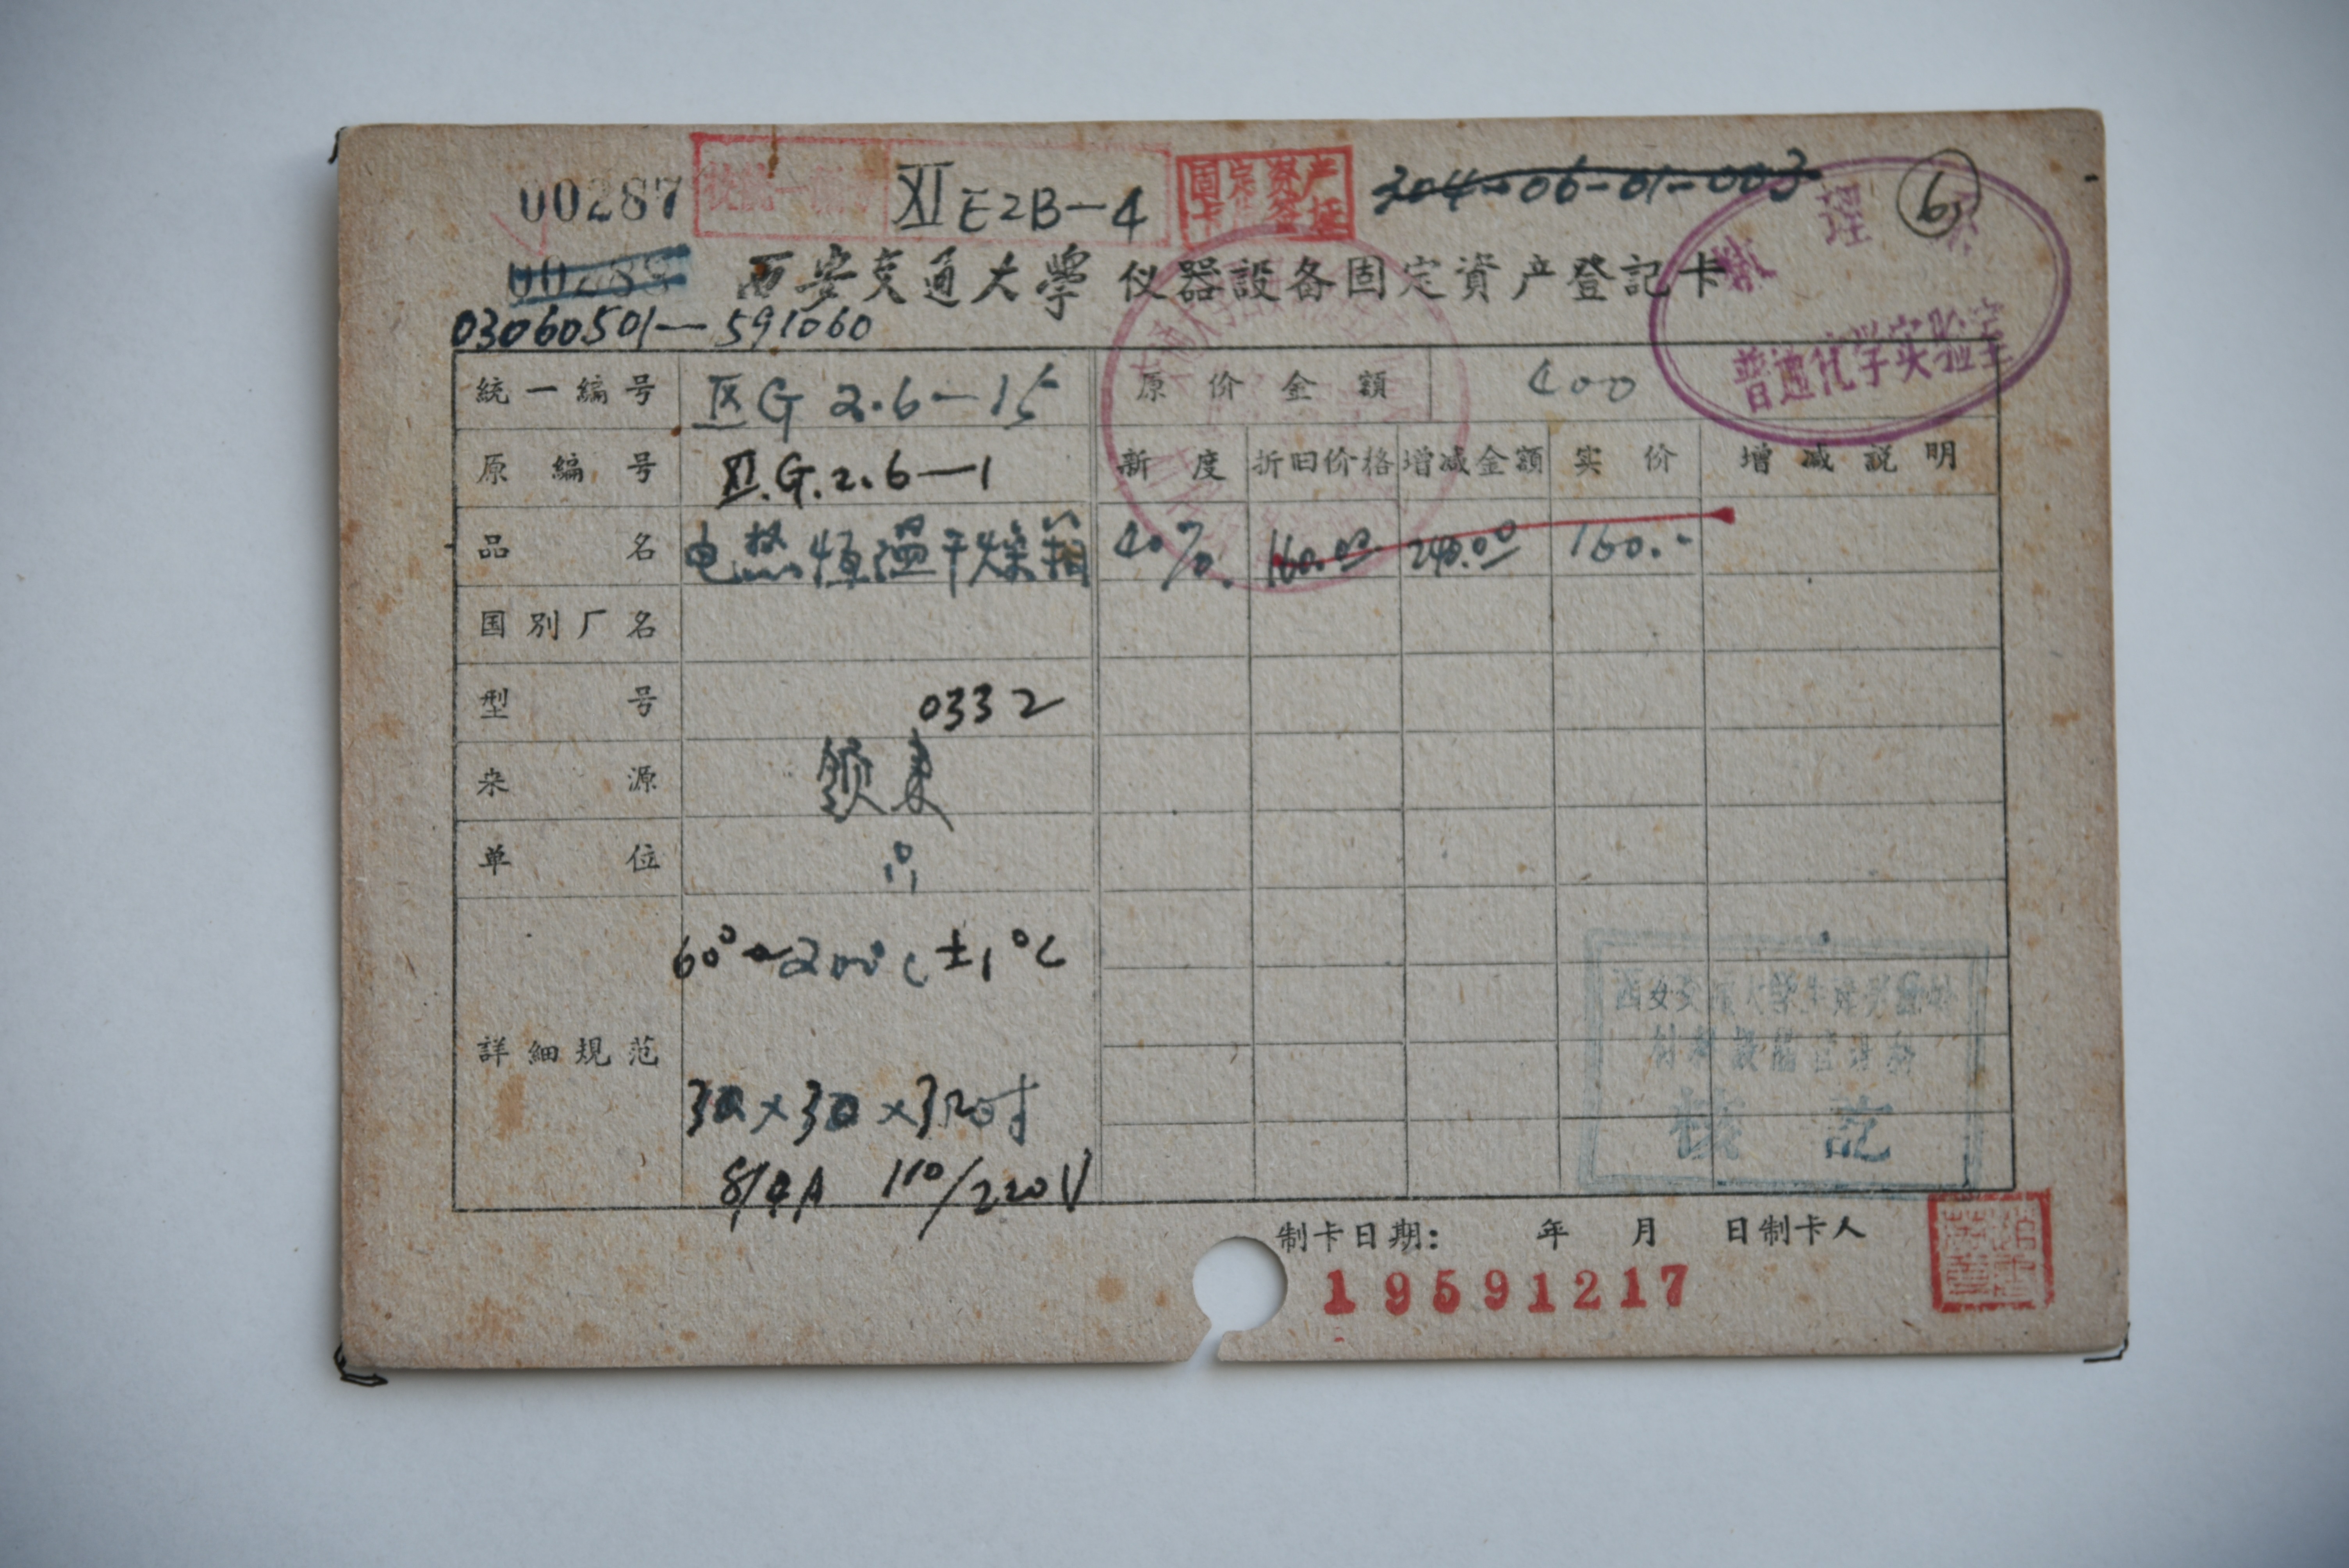 00287 XI E2B-4 固定资产 304-06-01-003 6
西安交通大學 仪器設备固定資产登記卡
03060501—591060
普通化学实验室
統一編号 区G 2.6—15 原价金額 400
原編号 XI.G.2.6—1 新度 折旧价格 增减金額 实价 增减説明
品名 电热恒温干燥箱 40%. 160.00 240.00 160.--
国别厂名
型号 0332
来源 领来
单位
60°~200°C ±1°C
詳細規范
30×30×30吋
8/4A 110/220V
核 記
制卡日期: 年 月 日制卡人
19591217